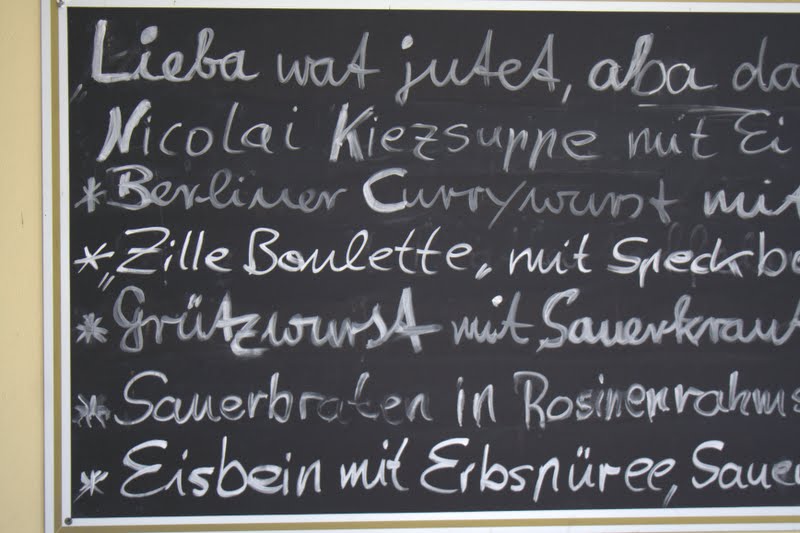 Lieba wat jutet, aba da
Nicolai Kiezsuppe mit Ei
* Berliner Currywurst mit
* „Zille Boulette“ mit Speckbo
* Grützwurst mit Sauerkraut
* Sauerbraten in Rosinenrahms
* Eisbein mit Erbspüree, Saue